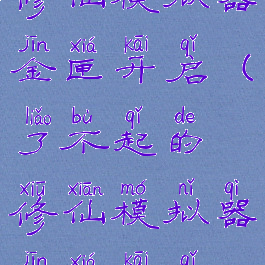 修仙模拟器
jīn xiá kāi qǐ
金匣开启（
liǎo bù qǐ de
了不起的
xiū xiān mó nǐ qì
修仙模拟器
jīn xiá kāi qǐ